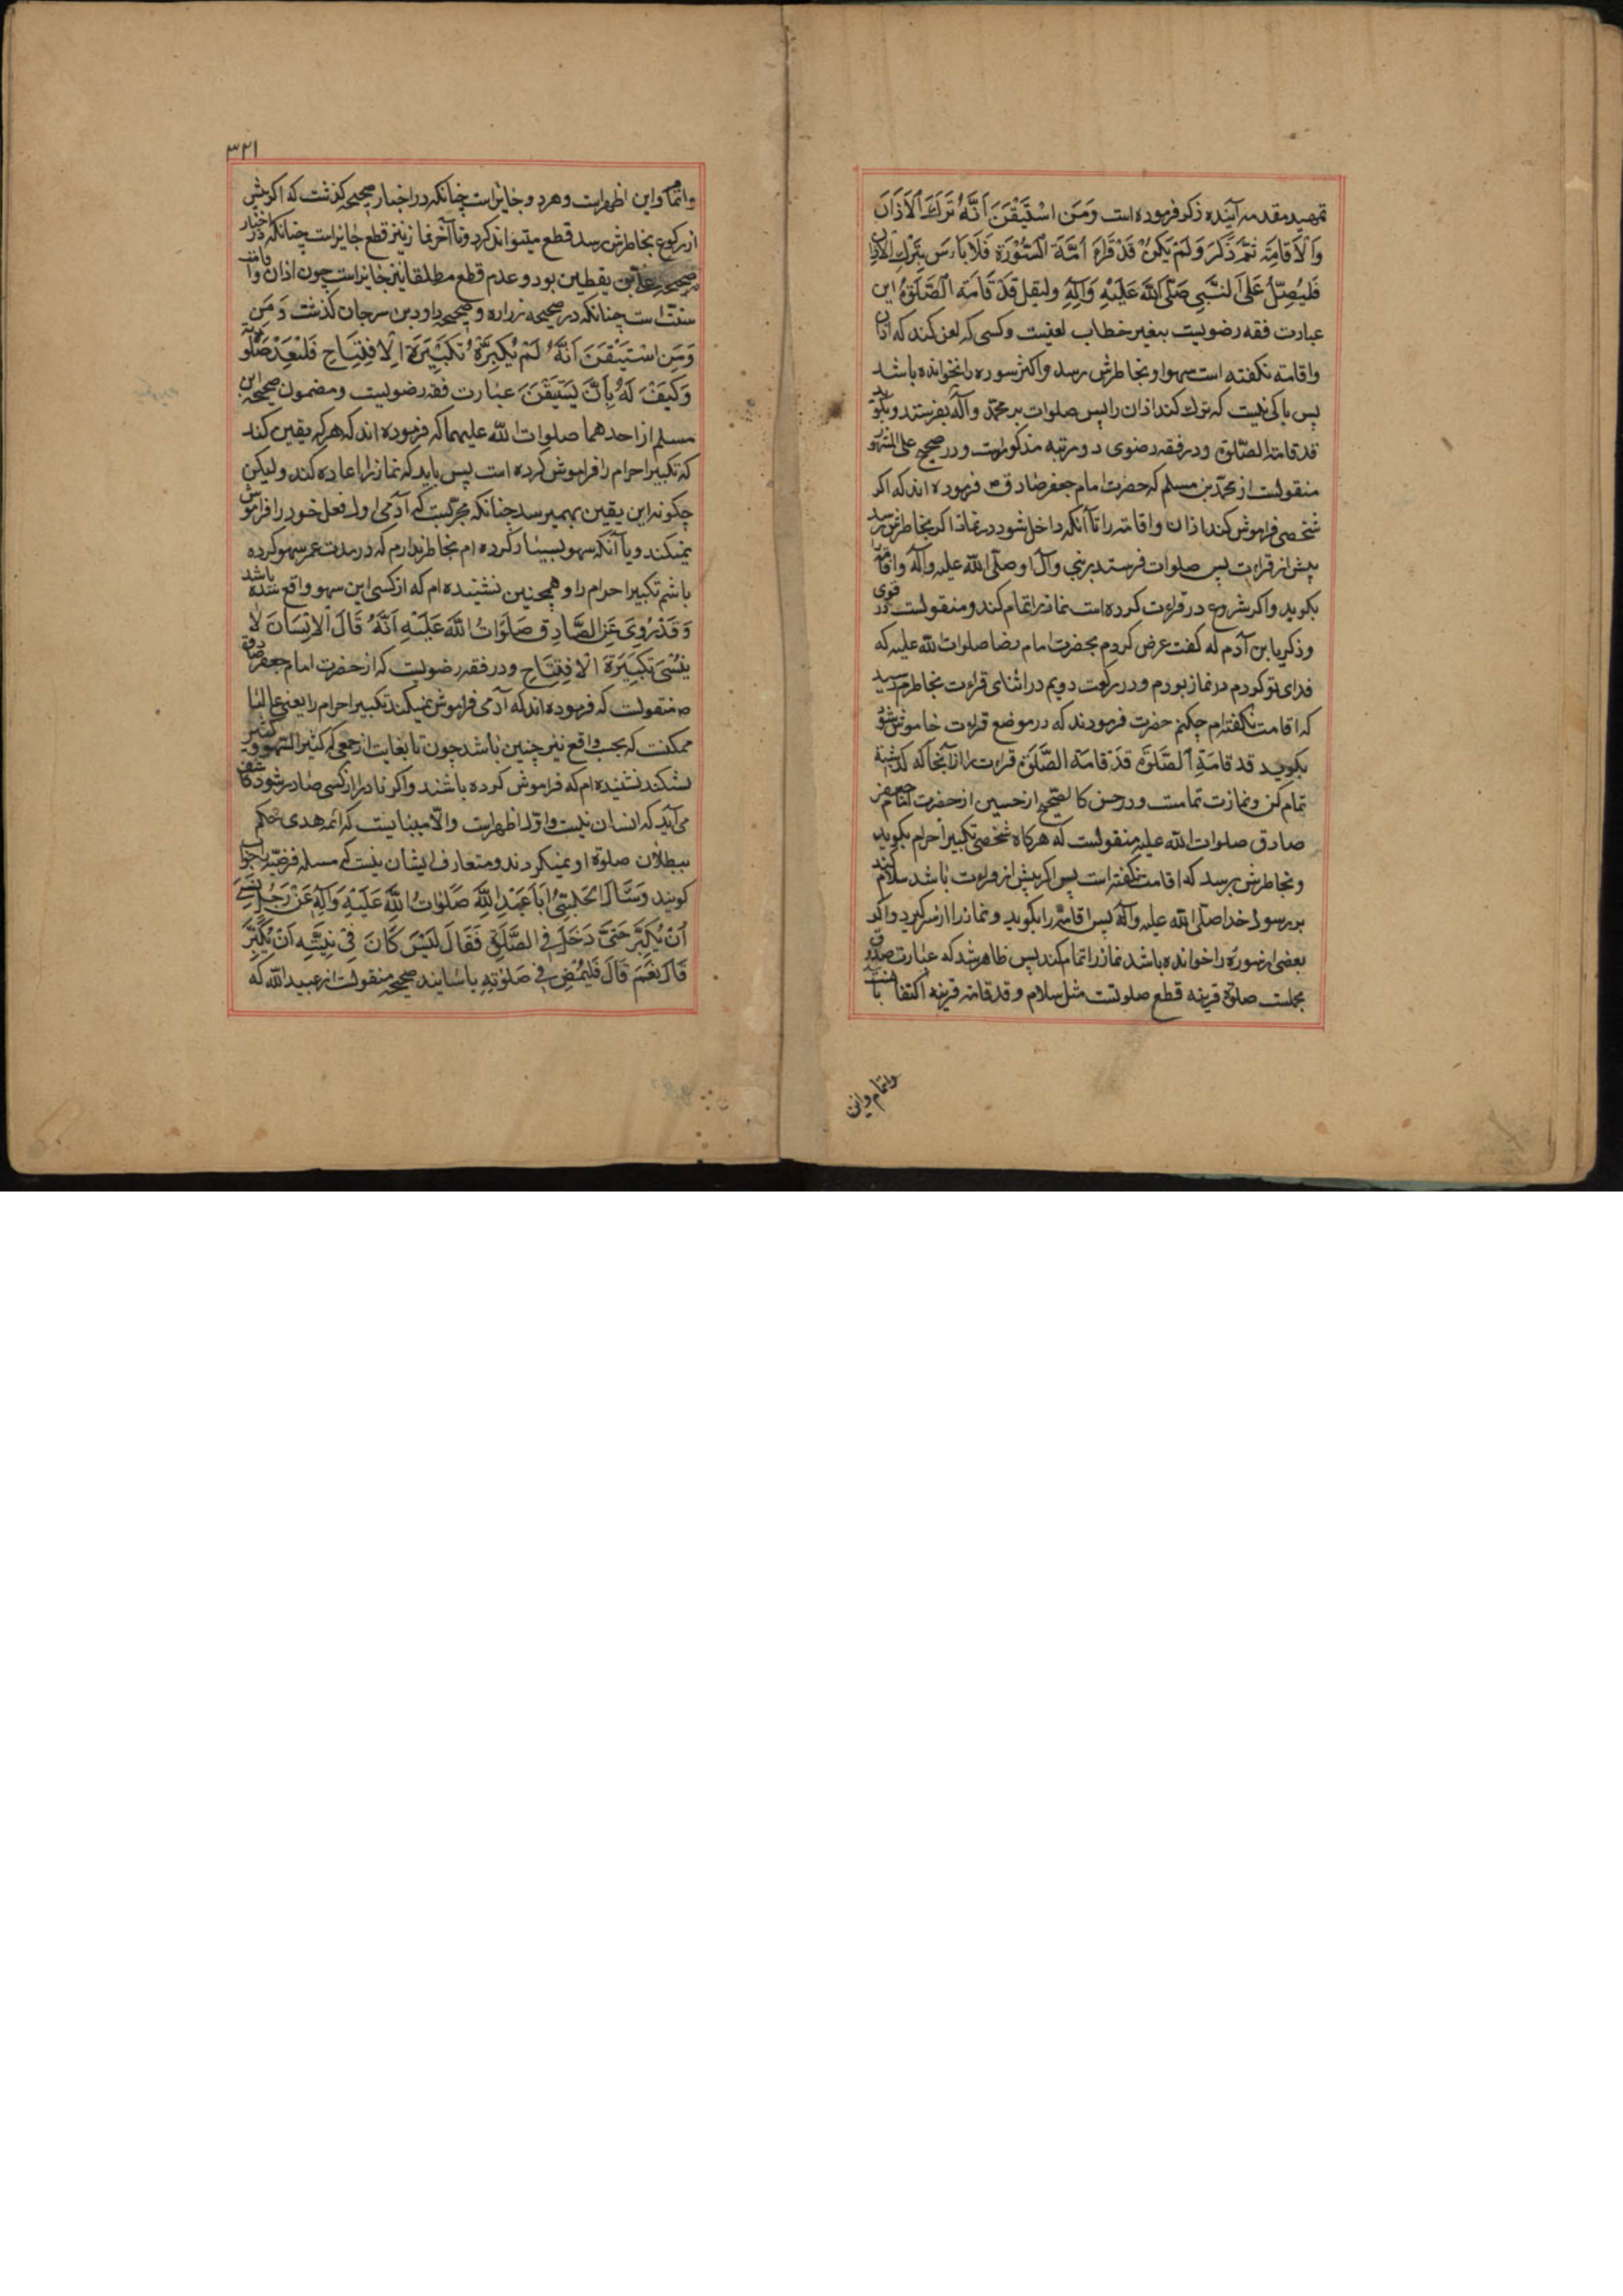 تمهید مقدمه آینده ذکر فرموده است وَمَنِ اسْتَیْقَنَ اَنَّهُ تَرَكَ الْاَذَانَ
وَالْاَقَامَةِ ثُمَّ ذَکَرَ وَلَمْ یَکُنْ قَدْ قَرَاَ اُمَّةَ السُّوْرَةِ فَلَا بَاْسَ بِتَرْكِ الْاَذَانِ
فَلْیُصَلِّ عَلَی النَّبِیِّ صَلَّی اللهُ عَلَیْهِ وَآلِهِ ولیقل قَدْ قَامَةِ الصَّلٰوةُ این
عبارت فقه رضویست بتغیر خطاب لغیبت وکسی که کند که اذان
واقامة نکفته است سهوا وبخاطرش رسد واکثر سوره را نخوانده باشد
پس باکی نیست که ترك کند اذان را پس صلوات بر محمد وآله بفرستد وبکوید
قد قامة الصلوة ودر فقه رضوی دو مرتبه مذکور است ودر صحیح علی المشهور
منقولست از محمد بن مسلم که حضرت امام جعفر صادق ص فرموده اند که اکر
شخصی فراموش کند اذان واقامة را تا آنکه داخل شود در نماز اکر بخاطرش رسد
پیش از قراءت پس صلوات فرستد بر نبی وآل او صلی الله علیه وآله واقامة
بکوید واکر شروع در قراءت کرده است نماز را تمام کند ومنقولست در قوی
وذکریا بن آدم که کفت عرض کردم بحضرت امام رضا صلوات الله علیه که
فدای تو کردم در نماز بودم ودر رکعت دویم در اثنای قراءت بخاطرم رسید
که اقامت نکفته ام چکنم حضرت فرمودند که در موضع قراءت خاموش شو
بکوید قد قامَةِ الصَّلٰوةُ قَدْ قامة الصَّلٰوة قراءت را از آنجا که کذشته
تمام کن ونمازت تمامست ودر حسن کالصحیح از حسین از حضرت امام جعفر
صادق صلوات الله علیه منقولست که هرکاه شخصی تکبیر احرام بکوید
وبخاطرش برسد که اقامت نکفته است پس اکر پیش از قراءت باشد سلام کند
بر رسول خدا صلی الله علیه وآله پس اقامة را بکوید ونماز را از سرکیرد واکر
بعضی از سوره را خوانده باشد نماز را تمام کند پس ظاهر شد که عبارت صدوق
مجملست صلوة قرینه قطع صلوتست مثل سلام وقد قامة قرینه اکتفا با
واتمام واین
٣٢١
واتمام واین اظهر است وهردو جایز است چنانکه در اخبار صحیحه کذشت که اکر پیش
از رکوع بخاطرش رسد قطع میتواند کرد وتا آخر نماز نیز قطع جایز است چنانکه در اخبار
صحیحه علی بن یقطین بود وعدم قطع مطلقا نیز جایز است چون اذان واقامة
سنت است چنانکه در صحیحه زراره وصحیحه داود بن سرحان کذشت وَمَنِ
وَمَنِ اسْتَیْقَنَ اَنَّهُ لَمْ یُکَبِّرْ تَکْبِیْرَةَ الْاِفْتِتَاحِ فَلْیُعِدْ صَلٰوتَهُ
وَکَیْفَ لَهُ بِاَنْ یَسْتَیْقِنَ عبارت فقه رضویست ومضمون صحیحه ابن
مسلم از احدهما صلوات الله علیهما که فرموده اند که هرکه یقین کند
که تکبیر احرام را فراموش کرده است پس باید که نماز را اعاده کند ولیکن
چکونه این یقین بهمیرسد چنانکه مجربست که آدمی اول فعل خود را فراموش
نمیکند ویا آنکه سهو بسیار کرده ام بخاطر ندارم که در مدت عمر سهو کرده
باشم تکبیر احرام را وهمچنین نشنیده ام که از کسی این سهو واقع شده باشد
وَقَدْ رُوِیَ عَنِ الصَّادِقِ صَلَوَاتُ اللهِ عَلَیْهِ اَنَّهُ قَالَ الْاِنْسَانُ لَا
یَنْسَی تَکْبِیْرَةَ الْاِفْتِتَاحِ ودر فقه رضویست که از حضرت امام جعفر صادق
ص منقولست که فرموده اند که آدمی فراموش نمیکند تکبیر احرام را یعنی غالبا
ممکنست که بحسب واقع نیز چنین باشد چون تا بغایت از جمعی که کثیر السهو وکثیر
الشکند نشنیده ام که فراموش کرده باشند واکر نادرا از کسی صادر شود
می آید که انسان نیست واول اظهر است والا میبایست که ائمه هدی حکم
ببطلان صلوة او نمیکردند ومتعارف ایشان نیست که مسله فرضیه را جواب
کویند وَسَئَلَ الْحَلَبِیُّ اَبَا عَبْدِ اللهِ صَلَوَاتُ اللهِ عَلَیْهِ وَآلِهِ عَنْ رَجُلٍ نَسِیَ
اَنْ یُکَبِّرَ حَتَّی دَخَلَ فِی الصَّلٰوةِ فَقَالَ لَیْسَ کَانَ فِیْ نِیَّتِهِ اَنْ یُکَبِّرَ
قَالَ نَعَمْ قَالَ فَلْیَمْضِ فِی صَلٰوتِهِ باسانید صحیحه منقولست از عبید الله که